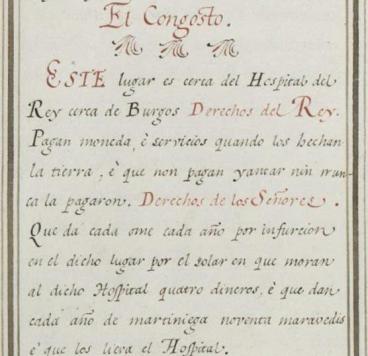 El Congosto.
ESTE lugar es cerca del Hospital del
Rey cerca de Burgos Derechos del Rey.
Pagan moneda, è servicios quando los hechan
la tierra, è que non pagan yantar nin nun-
ca la pagaron. Derechos de los Señores.
Que da cada ome cada año por infurcion
en el dicho lugar por el solar en que moran
al dicho Hospital quatro dineros, è que dan
cada año de martiniega noventa maravedis
è que los lieva el Hospital.